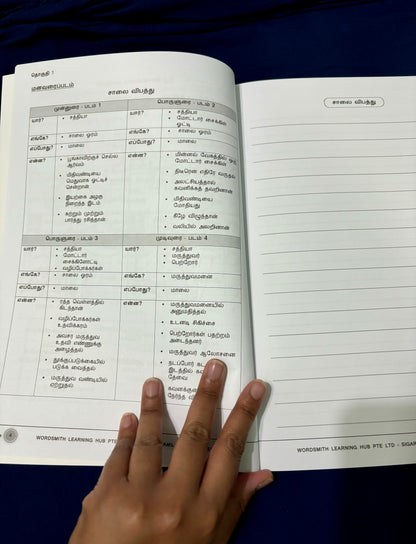 தொகுதி 1
மனவரைப்படம்
சாலை விபத்து
முன்னுரை - படம் 1
யார்?
சத்தியா
எங்கே?
சாலை ஓரம்
எப்போது?
மாலை
என்ன?
பூங்காவிற்குச் செல்ல
ஆர்வம்
மிதிவண்டியை
மெதுவாக ஓட்டிச்
சென்றான்
இயற்கை அழகு
நிறைந்த இடம்
சுற்றும் முற்றும்
பார்த்து ரசித்தான்
பொருளுரை - படம் 2
யார்?
சத்தியா
மோட்டார் சைக்கிள்
ஓட்டி
எங்கே?
சாலை ஓரம்
எப்போது?
மாலை
என்ன?
மின்னல் வேகத்தில் ஒரு
மோட்டார் சைக்கிள்
திடீரென எதிரே வருதல்
அலட்சியத்தால்
கவனிக்கத் தவறினான்
மிதிவண்டியை
மோதியது
கீழே விழுந்தான்
வலியில் அலறினான்
பொருளுரை - படம் 3
யார்?
சத்தியா
மோட்டார்
சைக்கிளோட்டி
வழிப்போக்கர்கள்
எங்கே?
சாலை ஓரம்
எப்போது?
மாலை
என்ன?
ரத்த வெள்ளத்தில்
கிடந்தான்
வழிப்போக்கர்கள்
உதவிக்கரம்
அவசர மருத்துவ
உதவி எண்ணுக்கு
அழைத்தல்
தூக்குப்படுக்கையில்
படுக்க வைத்தல்
மருத்துவ வண்டியில்
ஏற்றுதல்
முடிவுரை - படம் 4
யார்?
சத்தியா
மருத்துவர்
பெற்றோர்
எங்கே?
மருத்துவமனை
எப்போது?
மாலை
என்ன?
மருத்துவமனையில்
அனுமதித்தல்
உடனடி சிகிச்சை
பெற்றோர்கள் பதற்றம்
அடைந்தனர்
மருத்துவர் ஆலோசனை
நடப்போர் கட
இடத்தில் கவ
தேவை
கவனக்குறை
நேர்ந்த வி
4
WORDSMITH LEARNING HUB PTE
சாலை விபத்து
WORDSMITH LEARNING HUB PTE LTD - SIGAR